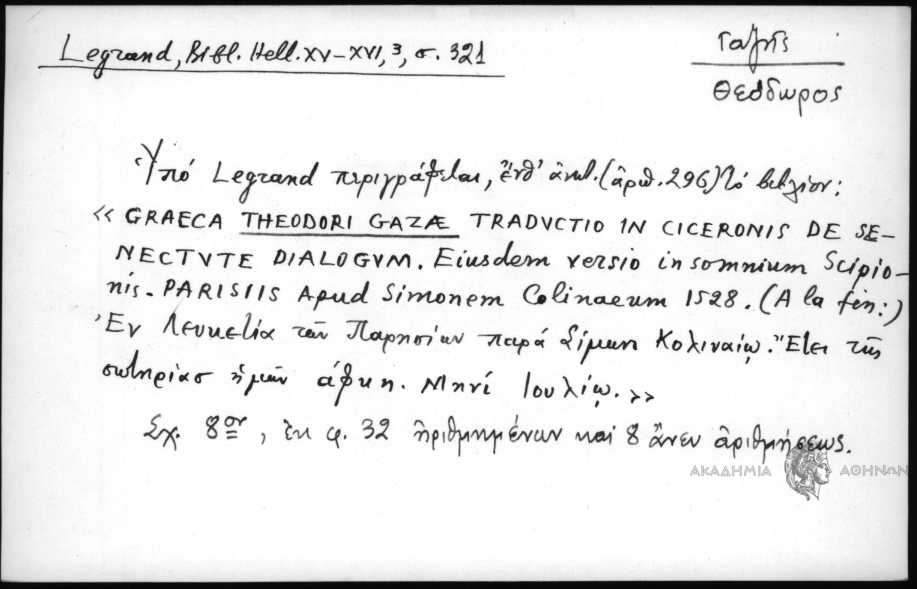 Legrand, Bibl. Hell. XV–XVI, 3, σ. 321
Γαζῆς
Θεόδωρος
Ὑπό Legrand περιγράφεται, ἔνθ' ἀνωτ. (ἀριθ. 296) τό βιβλίον:
« GRAECA THEODORI GAZÆ TRADVCTIO IN CICERONIS DE SE–
NECTVTE DIALOGVM. Eiusdem versio in somnium Scipio–
nis. PARISIIS Apud Simonem Colinaeum 1528. (A la fin:)
Ἐν Λευκετίᾳ τῶν Παρησίων παρά Σίμωνι Κολιναίῳ. Ἔτει τῆς
σωτηρίας ἡμῶν ἀφκη. Μηνί Ἰουλίῳ. »
Σχ. 8ον, ἐκ φ. 32 ἠριθμημένων καί 8 ἄνευ ἀριθμήσεως.
ΑΚΑΔΗΜΙΑ ΑΘΗΝΩΝ